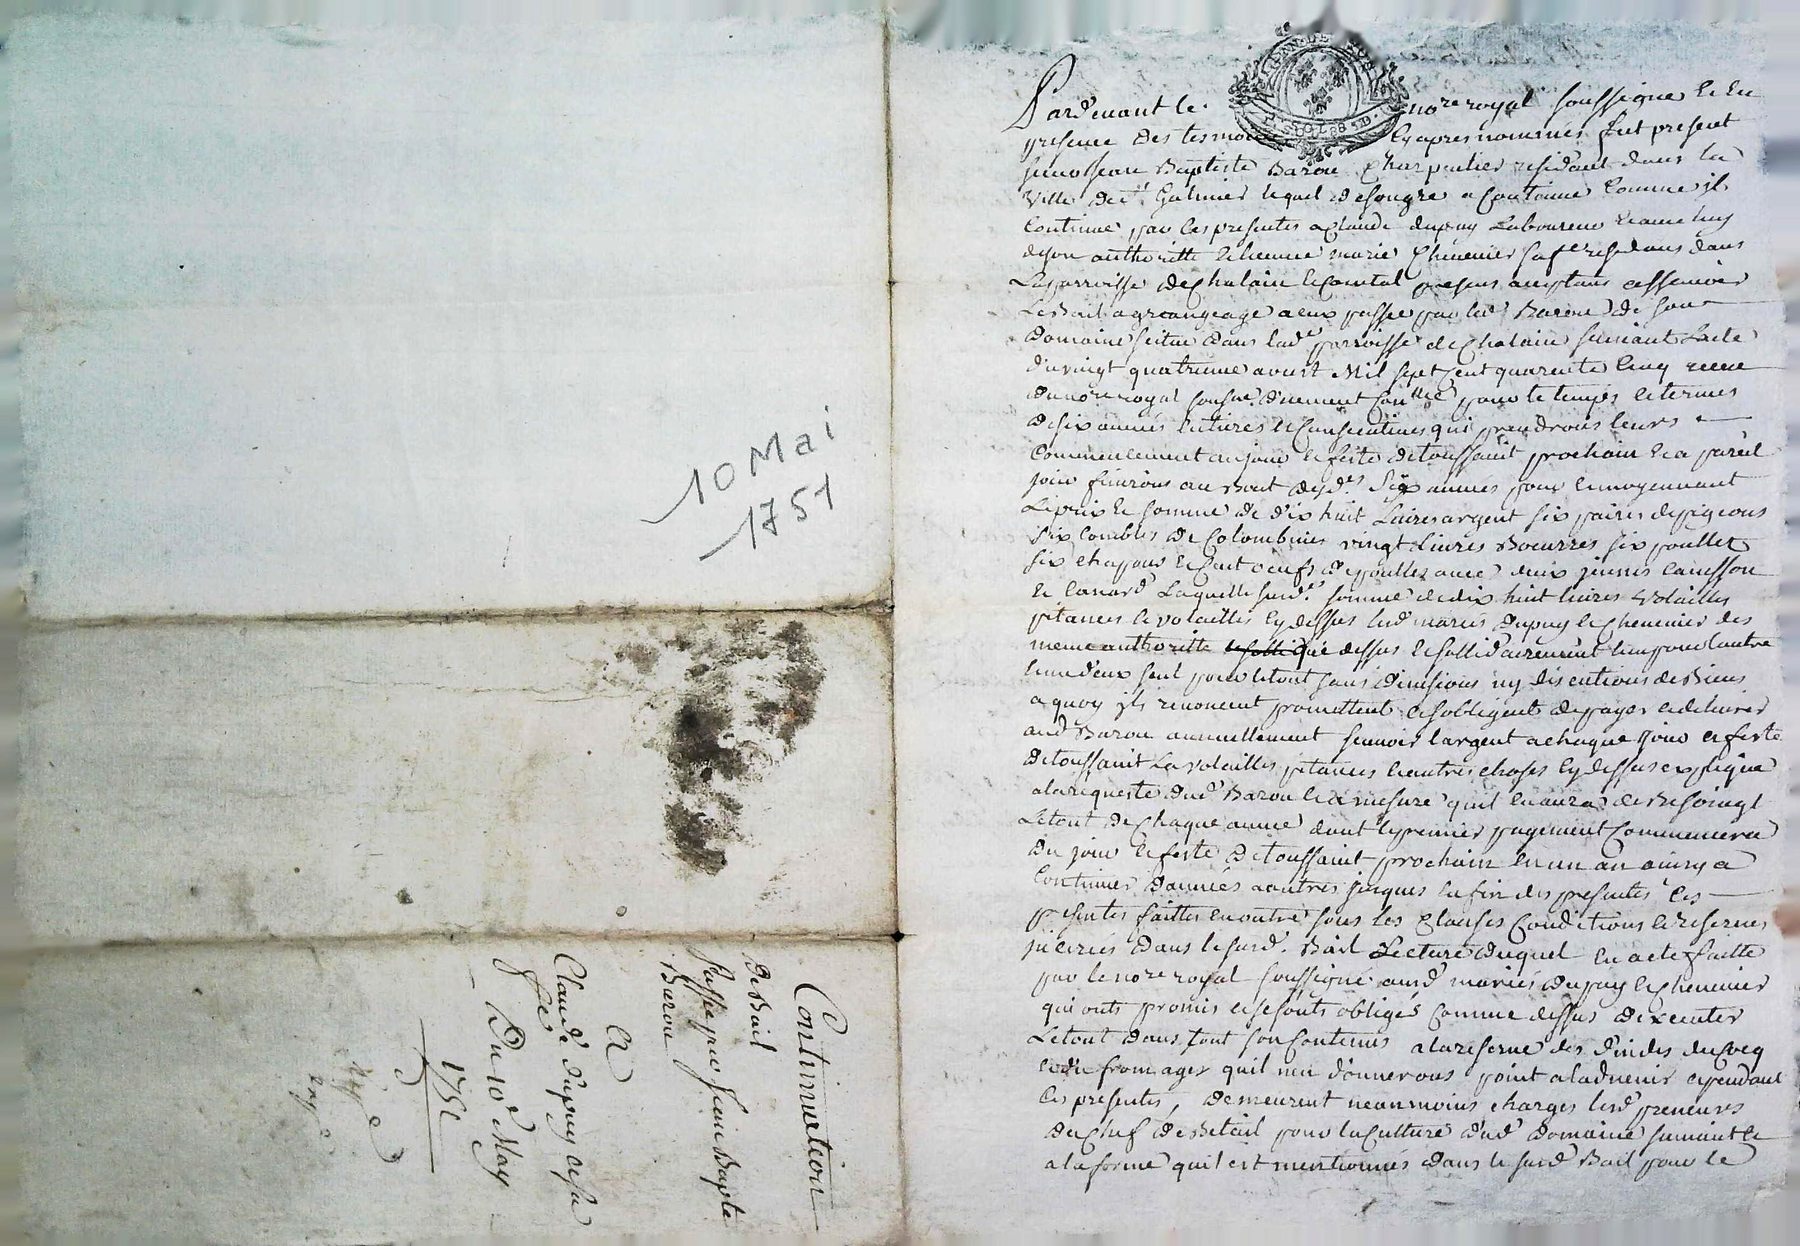 10 Mai
1751
Continuation
De Bail
Passé par Jean Bapte
Barou
a
Claude dupuy et sa
fe
Du 10e May
1751
Pardevant le nore royal soussigné et en
presence des tesmoins cy apres nommés fut present
sieur Jean Baptiste Barou Charpentier residant dans la
Ville de St Galmier lequel de son gré a Continué Comme il
Continue par Ces presentes a Claude dupuy Laboureur et avec luy
de son authorité Marie Chevenier sa fe residans dans
La parroisse de Chalain le Comtal presens acceptans assavoir
Le Bail a grangeage a eux passé par led Barou de son
Domaine scitué dans lade parroisse de Chalain suivant L'acte
du vingt quatrieme avust Mil sept Cent quarente Cinq receu
du nore royal sousne duement Conllé pour le temps et termes
de six années entieres et Consecutives qui prendront leurs
Commencement au jour et feste de toussaint prochain et a pareil
jour finirons au Bout desd. six années pour et moyennant
Le prix et somme de dix huit Livres argent six paires de pigeons
six Combles de Colombines vingt Livres Boeurres six poullets
six chapons et Cent oeufs de poulles avec deux jeunes
et Canard Laquelle susd. somme de dix huit livres Volailles
pitances et volailles cy dessus lesd mariés Dupuy et Chevenier des
meme authorité que dessus et sollidairement l'un pour l'autre
l'un d'eux seul pour le tout sans divisions ny discutions de Biens
a quoy ils renoncent promettent et s'obligent de payer et delivrer
aud Barou annuellement scavoir l'argent a chaque jour et feste
de toussaint La volailles pitances et autres choses cy dessus expliqué
a la requeste dud Barou et a mesure qu'il en aura de Besoingt
Le tout de Chaque année dont le premier payement Commencera
Du jour et feste de toussaint prochain en un an ainsy a
Continuer d'années a autres jusques en fin des presentes Ces
presentes faittes en outre sous les Clauses Conditions et reserves
incerées dans le susd. Bail Lecture duquel en a été faitte
par le nore royal soussigné auxd mariés Dupuy et Chevenier
qui onts promis et se sonts obligés Comme dessus d'executer
Le tout dans tout son Contenus a la reserve des d'indes du Coeq
et du fromages qu'il ne donnerons point a l'advenir et pendant
Ces presentes, demeurent neanmoins charges lesd preneurs
du Chef de Betail pour la Culture dud Domaine suivant et
a la forme qu'il est mentionnés dans le susd Bail pour le